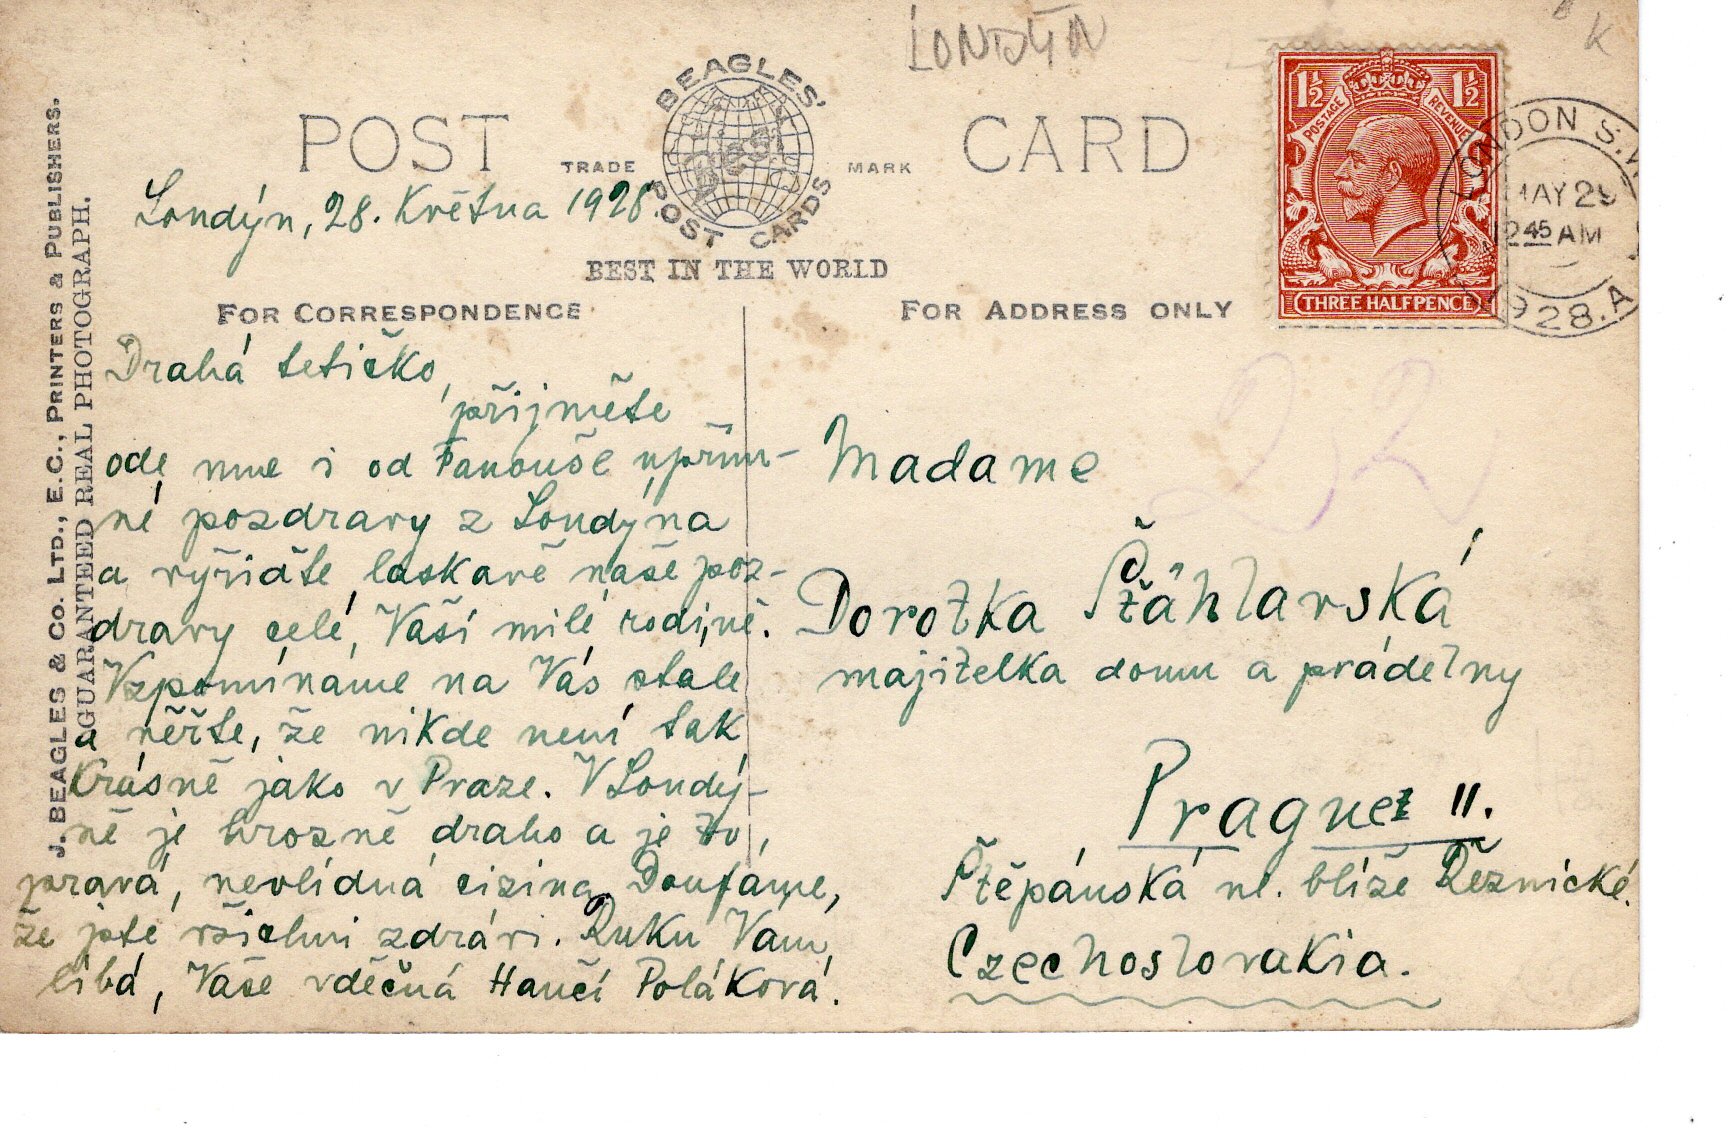 LONDÝN
K
POST CARD
BEAGLES'
TRADE MARK
Best
POST CARDS
BEST IN THE WORLD
FOR CORRESPONDENCE
FOR ADDRESS ONLY
J. BEAGLES & CO. LTD., E.C., PRINTERS & PUBLISHERS.
GUARANTEED REAL PHOTOGRAPH.
1½ 1½
POSTAGE REVENUE
THREE HALFPENCE
LONDON S.W.
MAY 29
2 45 AM
1928.A
Londýn, 28. Května 1928.
Drahá tetičko,
přijměte
ode mne i od Fanouše upřím-
né pozdravy z Londýna
a vyřiďte laskavě naše poz-
dravy celé Vaší milé rodině.
Vzpomínáme na Vás stale
a věřte, že nikde není tak
Krásně jako v Praze. V Londý-
ně je hrozně draho a je to
pravá, nevlídná cizina. Doufáme,
že jste všichni zdrávi. Ruku Vám
líbá, Vaše vděčná Hančí Poláková.
Madame
Dorotka Šťáhlavská
majitelka domu a prádelny
Prague II.
Štěpánská ul. blíže Řeznické.
Czechoslovakia.